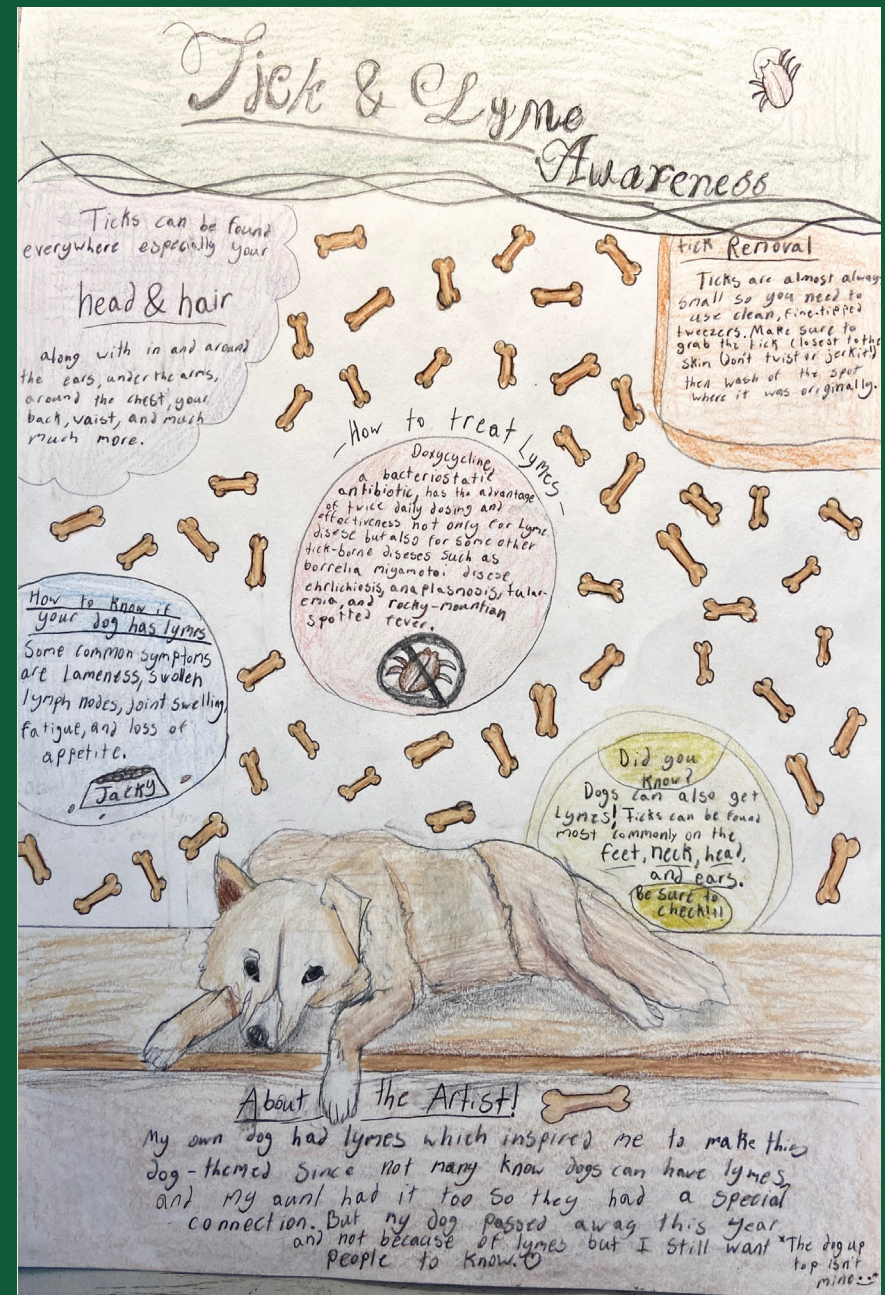 Tick & Lyme
Awareness
Ticks can be found
everywhere especially your
head & hair
along with in and around
the ears, under the arms,
around the chest, your
back, vaist, and much
much more.
tick Removal
Ticks are almost always
small so you need to
use clean, fine-tipped
tweezers. Make sure to
grab the tick closest to the
skin (don't twist or jerk it!)
then wash of the spot
where it was originally.
-How to treat Lymes-
Doxycycline,
a bacteriostatic
antibiotic, has the advantage
of twice daily dosing and
effectiveness not only for Lyme
disese but also for some other
tick-borne diseses such as
borrelia miyamotoi disese
ehrlichiosis, anaplasmosis, tular-
emia, and rocky-mountian
spotted fever.
How to know if
your dog has lymes
Some common symptoms
are Lameness, swollen
lymph nodes, joint swelling,
fatigue, and loss of
appetite.
Jacky
Did you
know?
Dogs can also get
Lymes! Ticks can be found
most commonly on the
feet, neck, head,
and ears.
Be sure to
check!!!
About the Artist!
My own dog had lymes which inspired me to make this
dog-themed since not many know dogs can have lymes,
and my aunt had it too so they had a special
connection. But my dog passed away this year
and not because of lymes but I still want
people to know.
*The dog up
top isn't
mine